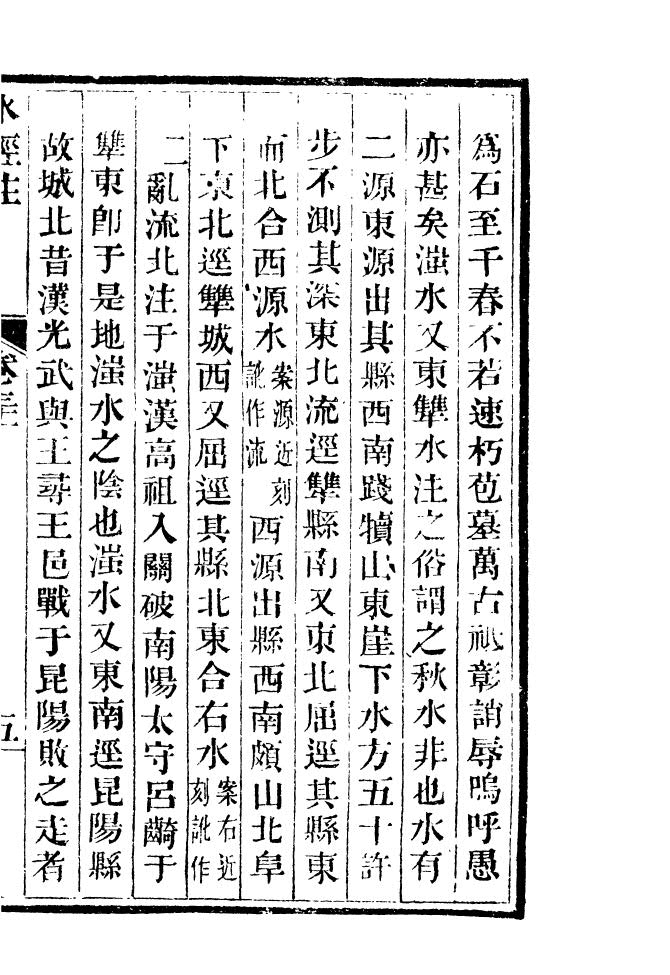 為石至千春不若速朽苞墓萬古祇彰誚辱嗚呼愚
亦甚矣滍水又東犨水注之俗謂之秋水非也水有
二源東源出其縣西南踐犢山東崖下水方五十許
步不測其深東北流逕犨縣南又東北屈逕其縣東
而北合西源水案源近刻訛作流西源出縣西南頗山北阜
下東北逕犨城西又屈逕其縣北東合右水案右近刻訛作
二亂流北注于滍漢高祖入關破南陽太守呂齮于
犨東卽于是地滍水之陰也滍水又東南逕昆陽縣
故城北昔漢光武與王尋王邑戰于昆陽敗之走者
水經注 卷三 五